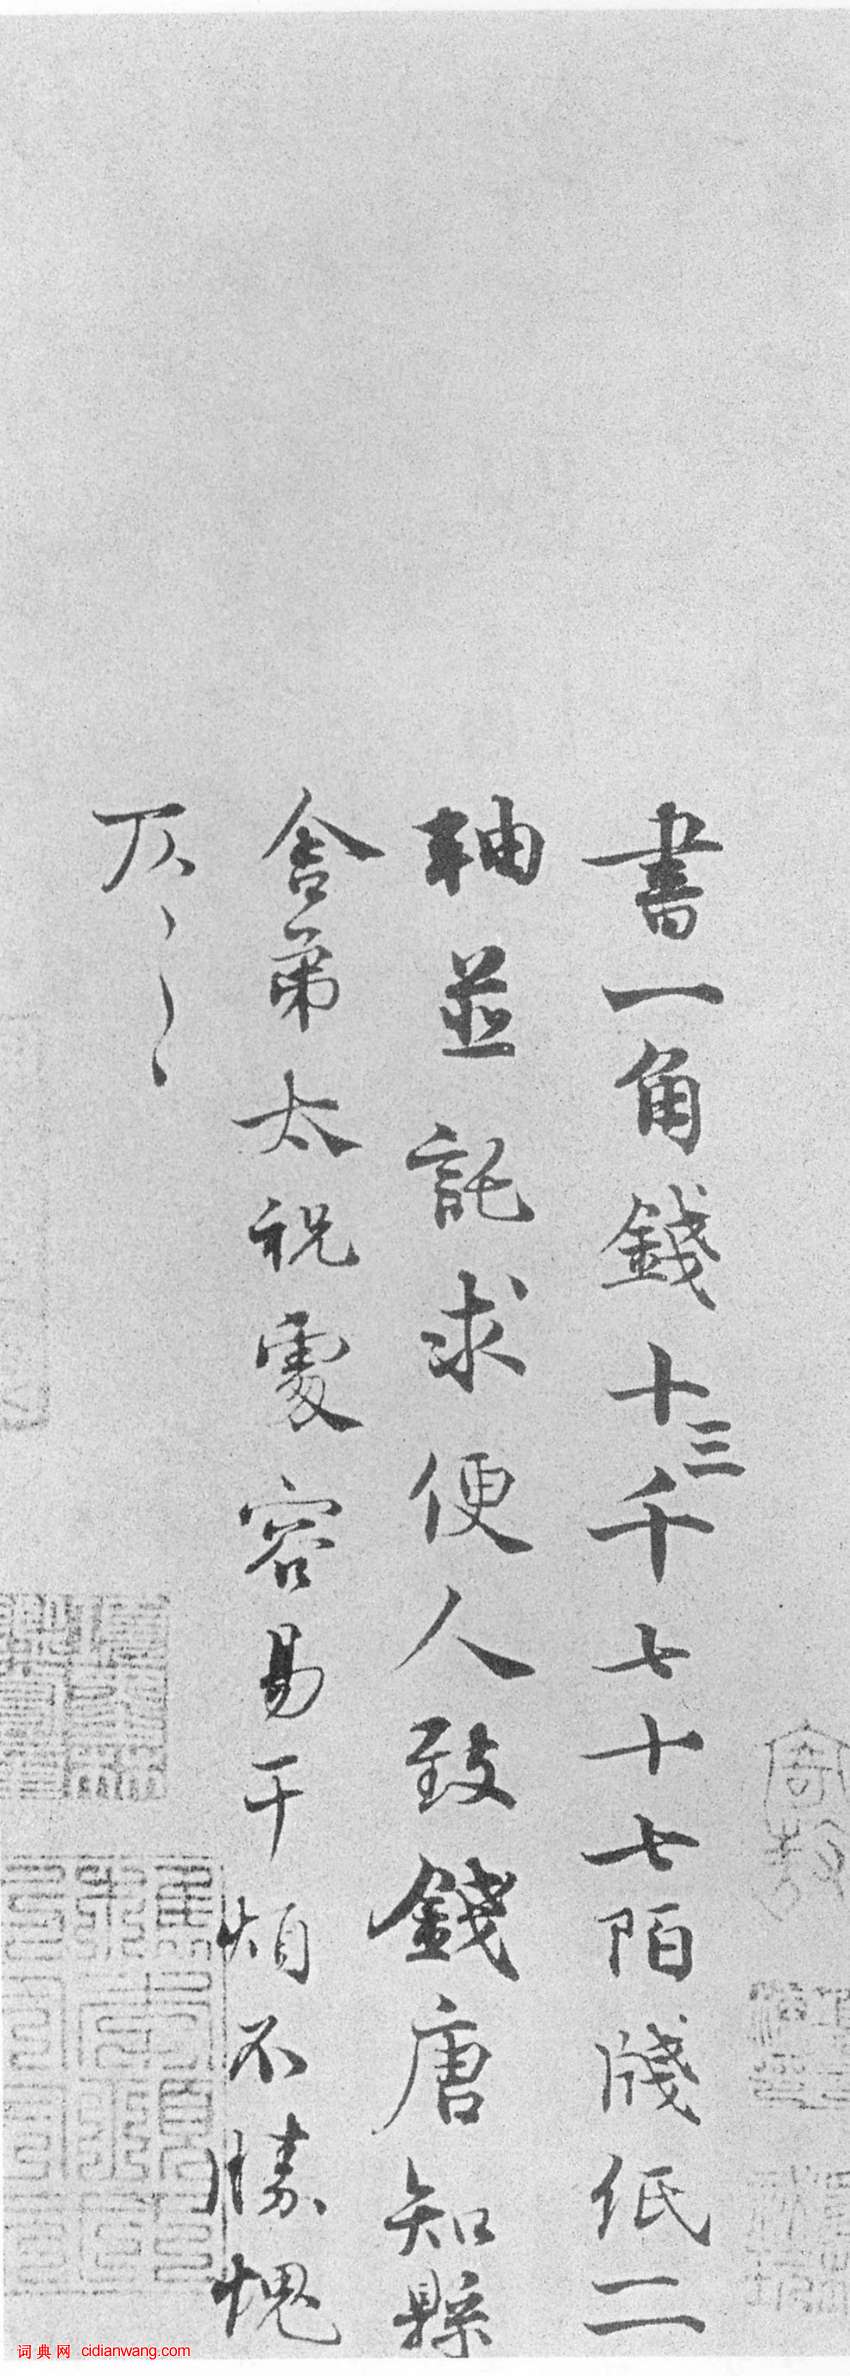 書一角錢十三千七十七陌牋紙二
軸並託求便人致錢唐知縣
舍弟太祝處容易干煩不勝愧
仄〻
词典网 cidianwang.com